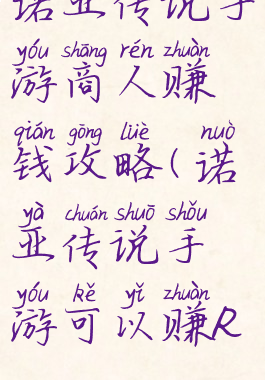 诺亚传说手
yóu shāng rén zhuàn
游商人赚
qián gōng lüè nuò
钱攻略(诺
yà chuán shuō shǒu
亚传说手
yóu kě yǐ zhuàn
游可以赚R